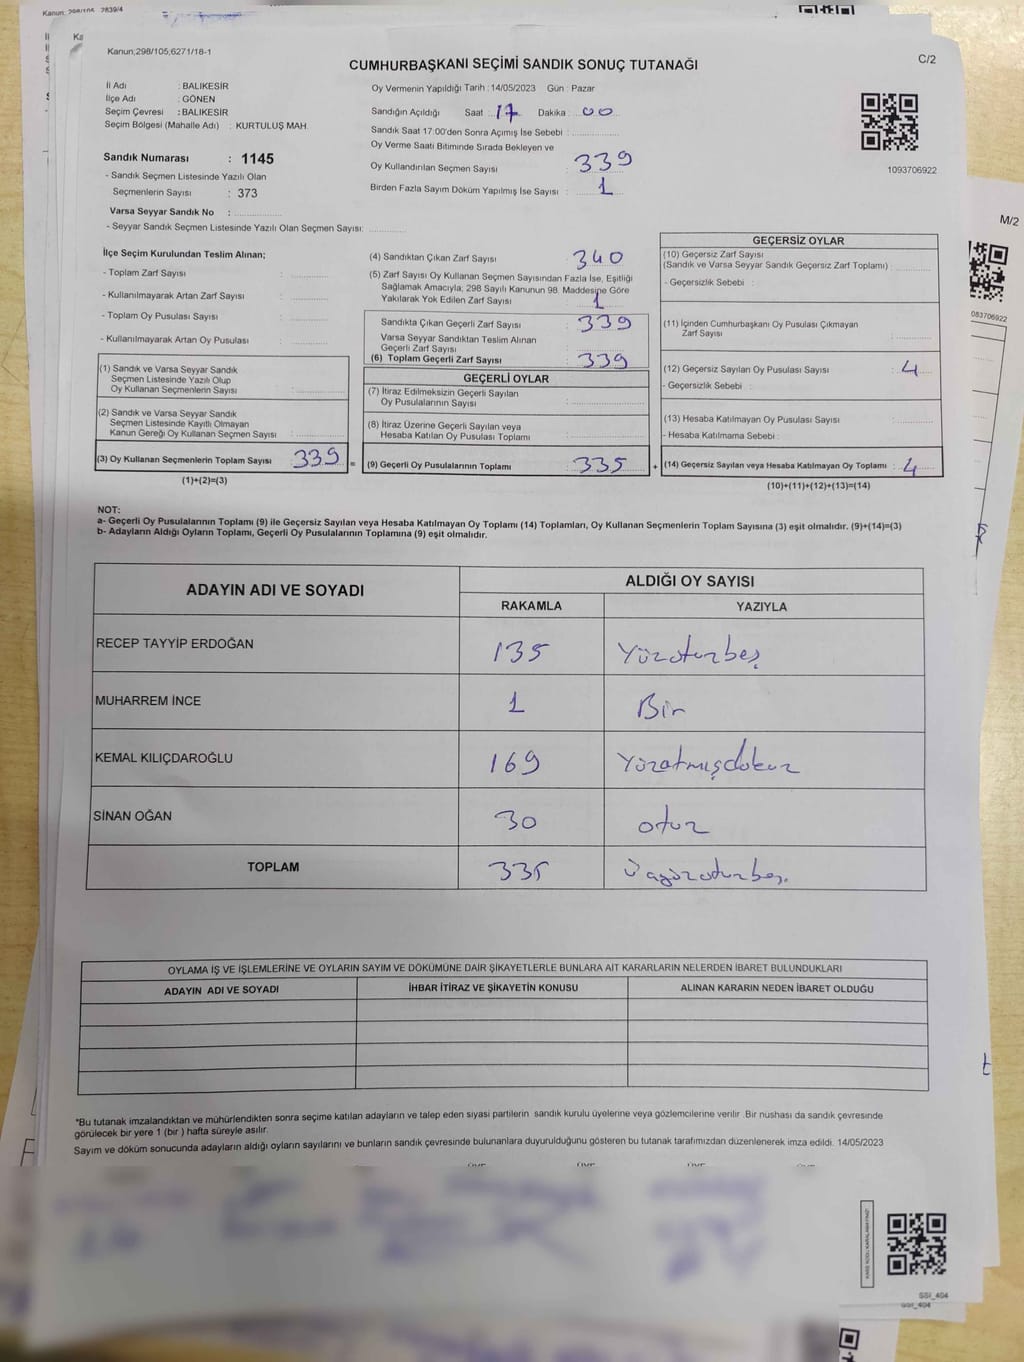 Kanun;298/105;6271/18-1
C/2
CUMHURBAŞKANI SEÇİMİ SANDIK SONUÇ TUTANAĞI
İl Adı : BALIKESİR
İlçe Adı : GÖNEN
Seçim Çevresi : BALIKESİR
Seçim Bölgesi (Mahalle Adı) : KURTULUŞ MAH.
Sandık Numarası : 1145
- Sandık Seçmen Listesinde Yazılı Olan
Seçmenlerin Sayısı : 373
Varsa Seyyar Sandık No :
- Seyyar Sandık Seçmen Listesinde Yazılı Olan Seçmen Sayısı:
Oy Vermenin Yapıldığı Tarih : 14/05/2023 Gün : Pazar
Sandığın Açıldığı Saat 17 Dakika : 00
Sandık Saat 17:00'den Sonra Açımış İse Sebebi :
Oy Verme Saati Bitiminde Sırada Bekleyen ve
Oy Kullandırılan Seçmen Sayısı : 339
Birden Fazla Sayım Döküm Yapılmış İse Sayısı : 1
1093706922
M/2
İlçe Seçim Kurulundan Teslim Alınan;
- Toplam Zarf Sayısı :
- Kullanılmayarak Artan Zarf Sayısı :
- Toplam Oy Pusulası Sayısı :
- Kullanılmayarak Artan Oy Pusulası :
(1) Sandık ve Varsa Seyyar Sandık
Seçmen Listesinde Yazılı Olup
Oy Kullanan Seçmenlerin Sayısı :
(2) Sandık ve Varsa Seyyar Sandık
Seçmen Listesinde Kayıtlı Olmayan
Kanun Gereği Oy Kullanan Seçmen Sayısı :
(3) Oy Kullanan Seçmenlerin Toplam Sayısı 339 =
(1)+(2)=(3)
(4) Sandıktan Çıkan Zarf Sayısı : 340
(5) Zarf Sayısı Oy Kullanan Seçmen Sayısından Fazla İse, Eşitliği
Sağlamak Amacıyla; 298 Sayılı Kanunun 98. Maddesine Göre
Yakılarak Yok Edilen Zarf Sayısı : 1
Sandıkta Çıkan Geçerli Zarf Sayısı : 339
Varsa Seyyar Sandıktan Teslim Alınan
Geçerli Zarf Sayısı :
(6) Toplam Geçerli Zarf Sayısı : 339
GEÇERLİ OYLAR
(7) İtiraz Edilmeksizin Geçerli Sayılan
Oy Pusulalarının Sayısı :
(8) İtiraz Üzerine Geçerli Sayılan veya
Hesaba Katılan Oy Pusulası Toplamı :
(9) Geçerli Oy Pusulalarının Toplamı : 335 +
GEÇERSİZ OYLAR
(10) Geçersiz Zarf Sayısı
(Sandık ve Varsa Seyyar Sandık Geçersiz Zarf Toplamı) :
- Geçersizlik Sebebi :
(11) İçinden Cumhurbaşkanı Oy Pusulası Çıkmayan
Zarf Sayısı :
(12) Geçersiz Sayılan Oy Pusulası Sayısı : 4
- Geçersizlik Sebebi :
(13) Hesaba Katılmayan Oy Pusulası Sayısı :
- Hesaba Katılmama Sebebi :
(14) Geçersiz Sayılan veya Hesaba Katılmayan Oy Toplamı : 4
(10)+(11)+(12)+(13)=(14)
NOT:
a- Geçerli Oy Pusulalarının Toplamı (9) ile Geçersiz Sayılan veya Hesaba Katılmayan Oy Toplamı (14) Toplamları, Oy Kullanan Seçmenlerin Toplam Sayısına (3) eşit olmalıdır. (9)+(14)=(3)
b- Adayların Aldığı Oyların Toplamı, Geçerli Oy Pusulalarının Toplamına (9) eşit olmalıdır.
ADAYIN ADI VE SOYADI ALDIĞI OY SAYISI
RAKAMLA YAZIYLA
RECEP TAYYİP ERDOĞAN 135 Yüzoturbeş
MUHARREM İNCE 1 Bir
KEMAL KILIÇDAROĞLU 169 Yüzatmışdokuz
SİNAN OĞAN 30 otuz
TOPLAM 335
OYLAMA İŞ VE İŞLEMLERİNE VE OYLARIN SAYIM VE DÖKÜMÜNE DAİR ŞİKAYETLERLE BUNLARA AİT KARARLARIN NELERDEN İBARET BULUNDUKLARI
ADAYIN ADI VE SOYADI İHBAR İTİRAZ VE ŞİKAYETİN KONUSU ALINAN KARARIN NEDEN İBARET OLDUĞU
*Bu tutanak imzalandıktan ve mühürlendikten sonra seçime katılan adayların ve talep eden siyasi partilerin sandık kurulu üyelerine veya gözlemcilerine verilir .Bir nushası da sandık çevresinde
görülecek bir yere 1 (bir ) hafta süreyle asılır.
Sayım ve döküm sonucunda adayların aldığı oyların sayılarını ve bunların sandık çevresinde bulunanlara duyurulduğunu gösteren bu tutanak tarafımızdan düzenlenerek imza edildi. 14/05/2023
SSI_404